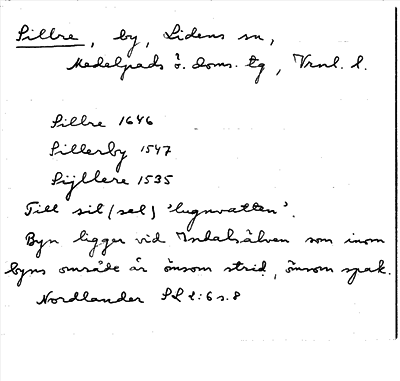 Sillre, by, Lidens sn,
Medelpads ö. doms. tg, Vrnl. l.
Sillre 1646
Sillerby 1547
Sijllere 1535
Till sil (sel) 'lugnvatten'.
Byn ligger vid Indalsälven som inom
byns område är ömsom strid, ömsom spak.
Nordlander SL 2:6 s. 8